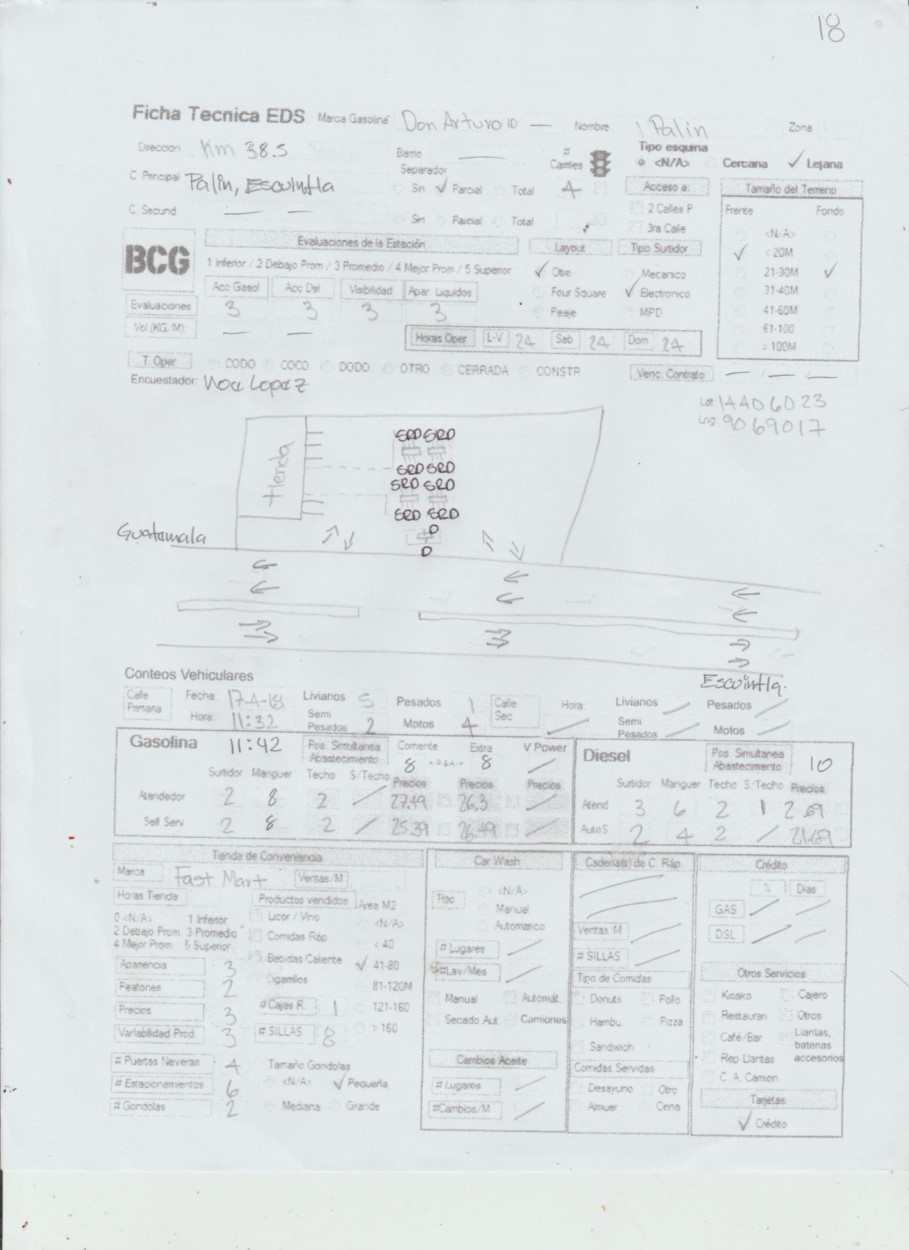 18
Ficha Tecnica EDS Marca Gasolina Don Arturo — Nombre Palin Zona
Direccion Km 38.5 Barrio — # Carriles Tipo esquina <N/A> Cercana ✓ Lejana
C. Principal Palin, Escuintla Separador Sin ✓ Parcial Total 4 Acceso a: Tamaño del Terreno
C. Secund — — Sin Parcial Total 2 Calles P Frente Fondo
3ra Calle <N/A>
BCG Evaluaciones de la Estación Layout Tipo Surtidor ✓ < 20M
1 Inferior / 2 Debajo Prom / 3 Promedio / 4 Mejor Prom / 5 Superior ✓ Otro Mecanico 21-30M ✓
Acc Gasol Acc Dsl Visibilidad Apar Liquidos Four Square ✓ Electronico 31-40M
Evaluaciones 3 3 3 3 Peaje MPD 41-60M
Vol (KG. M) — — Horas Oper L-V 24 Sab 24 Dom 24 61-100
> 100M
T. Oper CODO COCO DODO OTRO CERRADA CONSTR Venc. Contrato — — —
Encuestador: Noe Lopez
Lat 14A06023
Lng 9069017
SRD SRD
tienda
SRD SRD
SRD SRD
SRD SRD
D
D
Guatamala
Escuintla.
Conteos Vehiculares
Calle Primaria Fecha: 17-4-18 Livianos 5 Pesados 1 Calle Sec Hora: Livianos Pesados
Hora: 11:32 Semi Pesados 2 Motos 4 Semi Pesados Motos
Gasolina 11:42 Pos. Simultanea Abastecimiento Corriente 8 Extra 8 V Power Diesel Pos. Simultanea Abastecimiento 10
Surtidor Manguer Techo S/Techo Precios Precios Precios Surtidor Manguer Techo S/Techo Precios
Atendedor 2 8 2 / 27.49 26.3 Atend 3 6 2 1 2.69
Self Serv 2 8 2 / 25.39 26.49 AutoS 2 4 2 / 21.69
Tienda de Conveniencia Car Wash Cadena(s) de C. Ráp. Crédito
Marca Fast Mart Ventas/M <N/A> % Dias
Horas Tienda Productos vendidos Area M2 Tipo Manual GAS
0 <N/A> 1 Inferior Licor / Vino <N/A> Automatico Ventas /M DSL
2 Debajo Prom 3 Promedio Comidas Ráp < 40 # Lugares # SILLAS
4 Mejor Prom 5 Superior Bebidas Caliente ✓ 41-80 #Lav/Mes Tipo de Comidas Otros Servicios
Apariencia 3 Cigarrillos 81-120M Manual Automát. Donuts Pollo Kiosko Cajero
Peatones 2 # Cajas R. 1 121-160 Secado Aut Camiones Hambu. Pizza Restauran Otros
Precios 3 # SILLAS 8 > 160 Sandwich Café/Bar Llantas, baterias accesorios
Variabilidad Prod. 3 Cambios Aceite Comidas Servidas Rep Llantas
# Puertas Neveras 4 Tamaño Gondolas # Lugares Desayuno Otro C. A. Camion
# Estacionamientos 6 <N/A> ✓ Pequeña #Cambios/M Almuer Cena Tarjetas
# Gondolas 2 Mediana Grande ✓ Crédito